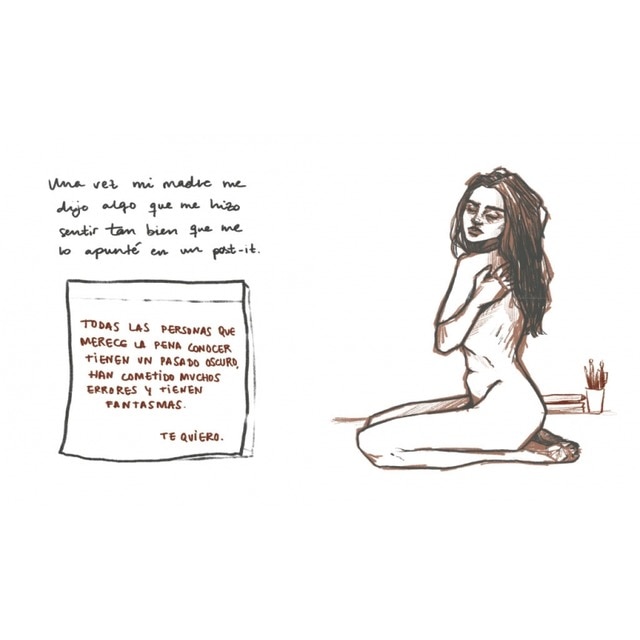 Una vez mi madre me
dijo algo que me hizo
sentir tan bien que me
lo apunté en un post-it.
TODAS LAS PERSONAS QUE
MERECE LA PENA CONOCER
TIENEN UN PASADO OSCURO,
HAN COMETIDO MUCHOS
ERRORES Y TIENEN
FANTASMAS.
TE QUIERO.